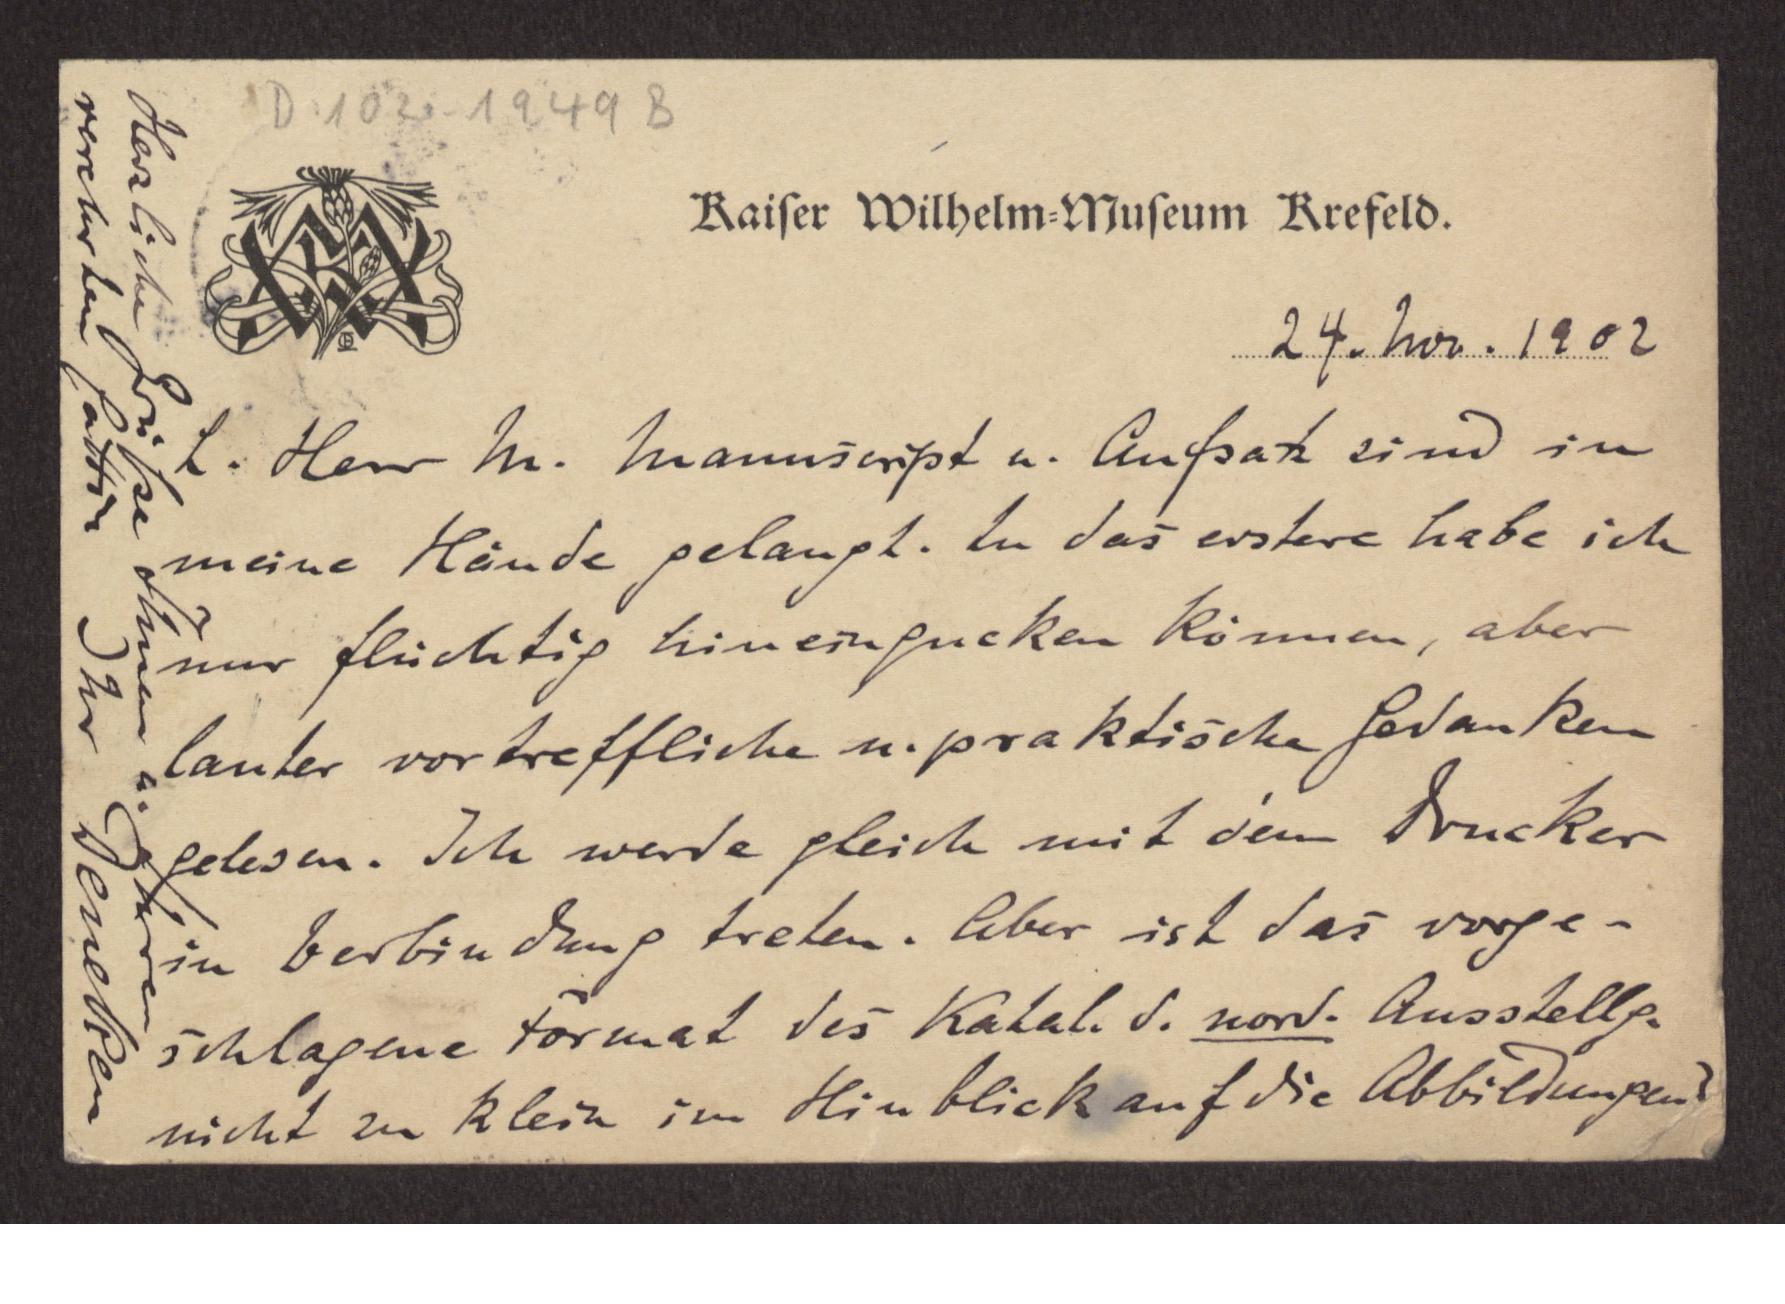 D 102-1949 B
Kaiser Wilhelm-Museum Krefeld.
24. Nov. 1902
L. Herr M. Manuscript u. Aufsatz sind in
meine Hände gelangt. In das erstere habe ich
nur flüchtig hineingucken können, aber
lauter vortreffliche u. praktische Gedanken
gelesen. Ich werde gleich mit dem Drucker
in Verbindung treten. Aber ist das vorge-
schlagene Format des Katal. d. nord. Ausstellg.
nicht zu klein im Hinblick auf die Abbildungen?
Herzliche Grüße Ihnen u. Ihrer
verehrten Gattin Ihr Deneken